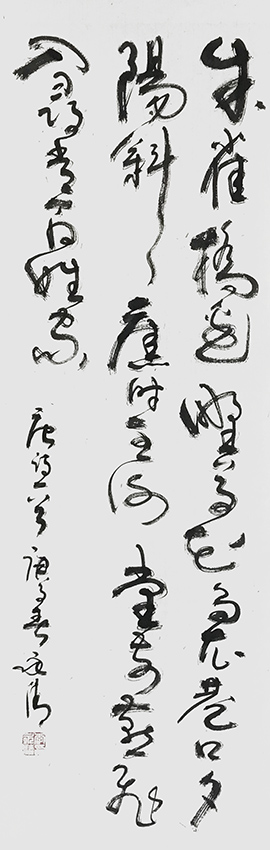 朱雀橋邊野草花烏衣巷口夕
陽斜舊時王謝堂前燕飛
入尋常百姓家
唐詩一首庚子春